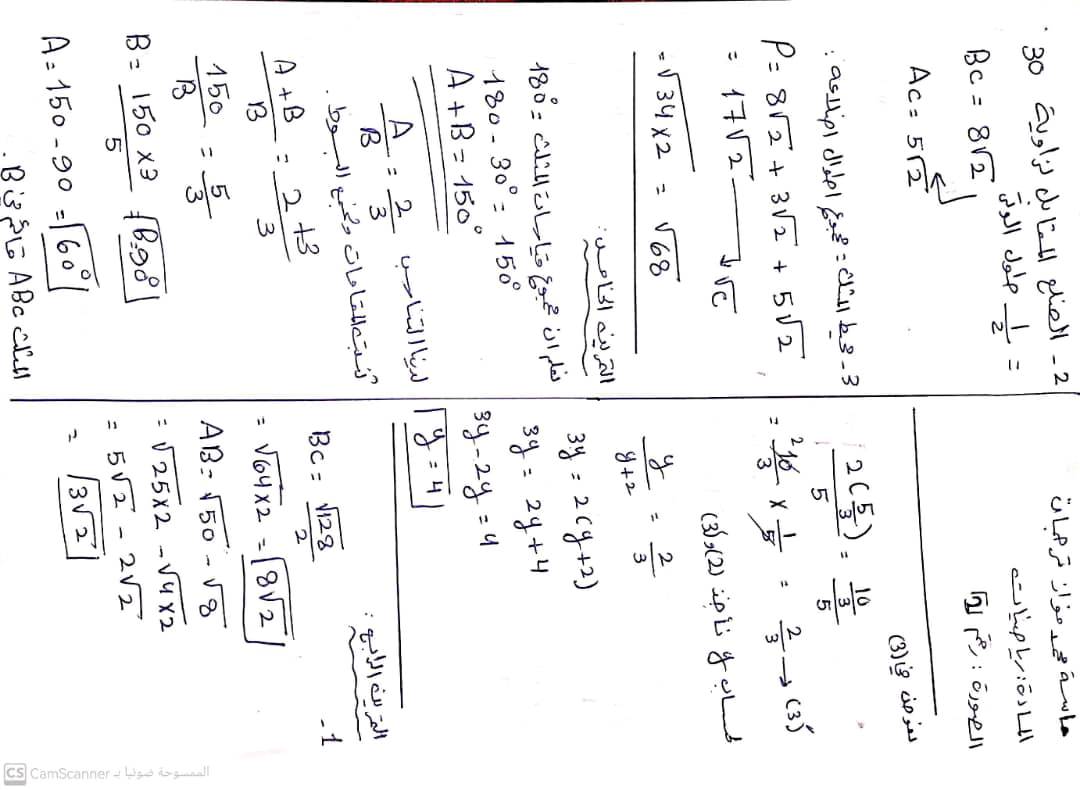 ماسة محمد فواز ترجمان
المادة: رياضيات
الصورة: رقم 2
نعوض في (3)
2(5/3)/5 = 10/3/5
= 10/3 × 1/5 = 2/3 → (3)
لحساب y ناخذ (2) و (3)
y/y+2 = 2/3
3y = 2(y+2)
3y = 2y+4
3y - 2y = 4
y = 4
التمرين الرابع:
1-
BC = √128/2
= √64×2 = 8√2
AB = √50 - √8
= √25×2 - √4×2
= 5√2 - 2√2
= 3√2
2- الضلع المقابل لزاوية 30
= 1/2 طول الوتر
BC = 8√2
AC = 5√2
3- محيط المثلث = مجموع اطوال اضلاعه:
P = 8√2 + 3√2 + 5√2
= 17√2 → √c
= √34×2 = √68
التمرين الخامس:
نعلم ان مجموع قياسات المثلث = 180°
180 - 30° = 150°
A + B = 150°
A/B = 2/3 لدينا التناسب
نثبت المقامات ونجمع البسوط.
A+B/B = 2+3/3
150/B = 5/3
B = 150×3/5 B = 90°
A = 150 - 90 = 60°
المثلث ABC قائم في B.
CS CamScanner الممسوحة ضوئيا بـ